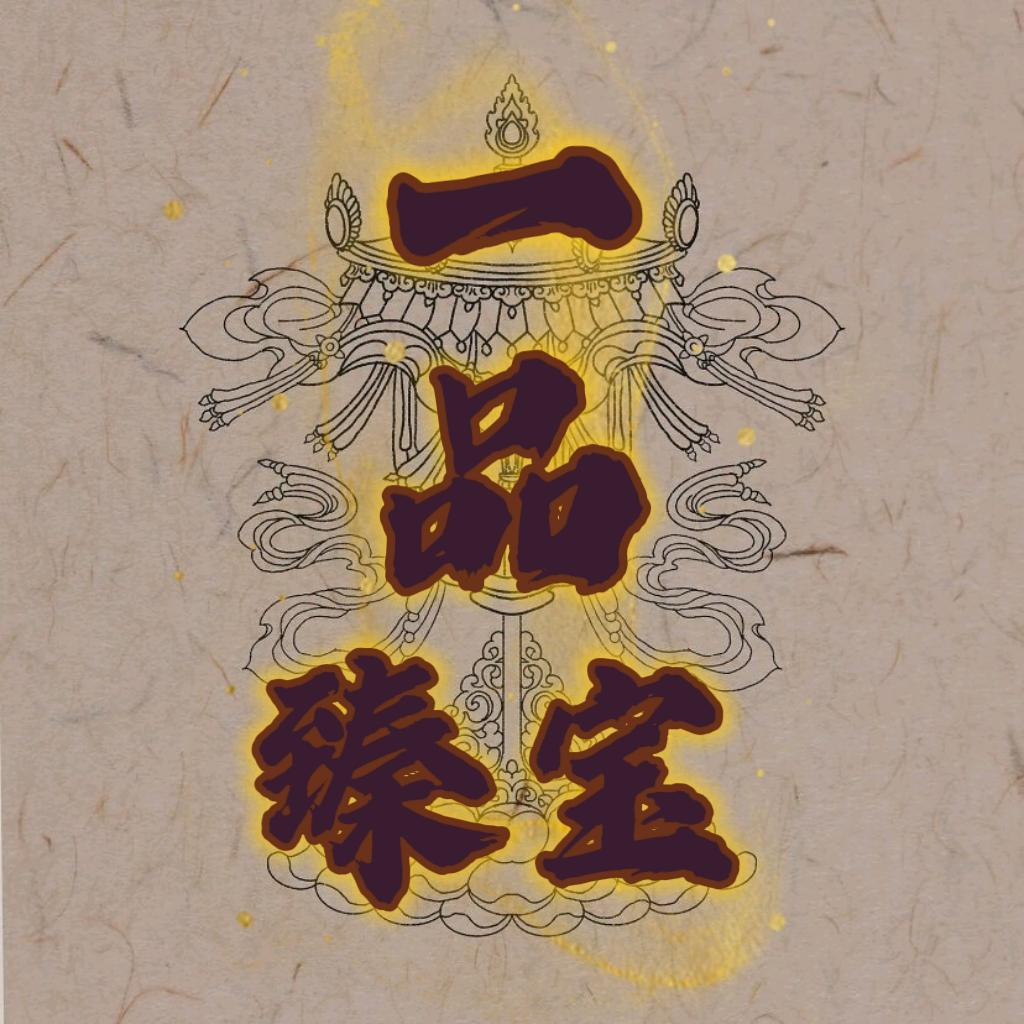 一
品
臻宝